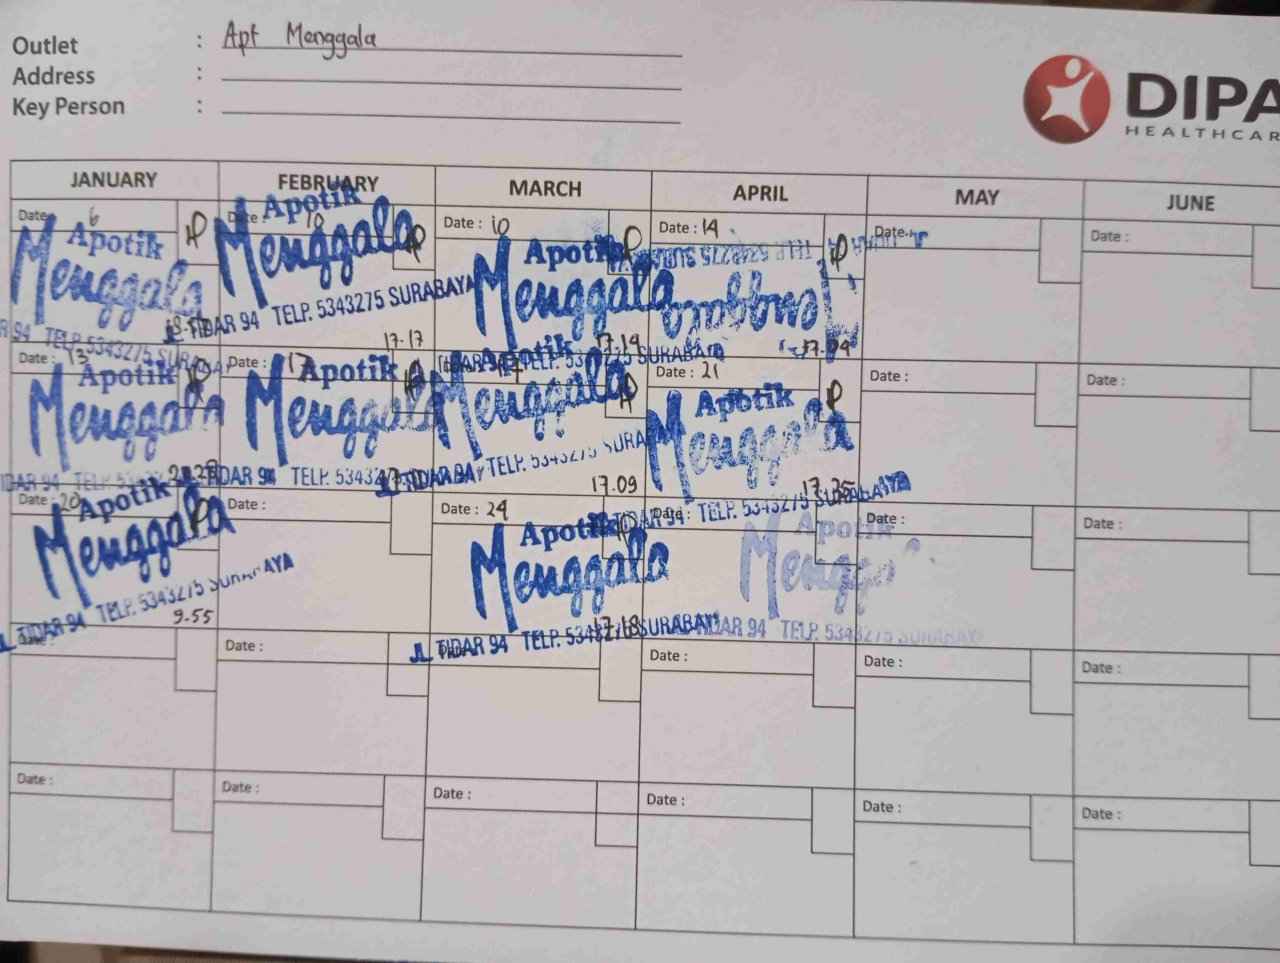 Outlet : Apt Menggala
Address :
Key Person :
DIPA
HEALTHCAR
JANUARY FEBRUARY MARCH APRIL MAY JUNE
Date : 6 Date : 10 Date : 10 Date : 14 Date : Date :
Apotik Menggala
TELP. 5343275 SURABAYA
Apotik Menggala
TIDAR 94 TELP. 5343275 SURABAYA
17-17
Apotik Menggala
TIDAR 94 TELP. 5343275 SURABAYA
17.19
Menggala
TELP. 5343275 SURABAYA
Date : 13 Date : 17 17 Date : 21 Date : Date :
Apotik Menggala
TIDAR 94 TELP.
Apotik Menggala
TIDAR 94 TELP. 5343275
Apotik Menggala
TELP. 5343275 SURABAYA
17.09
Apotik Menggala
TIDAR 94 TELP. 5343275 SURABAYA
Date : 20 Date : Date : 24 Date : Date : Date :
Apotik Menggala
JL TIDAR 94 TELP. 5343275 SURABAYA
9.55
Apotik Menggala
JL TIDAR 94 TELP. 5343275 SURABAYA
17.18
Apotik Mengga
TIDAR 94 TELP. 5343275 SURABAYA
Date : Date : Date : Date : Date :
Date : Date : Date : Date : Date : Date :